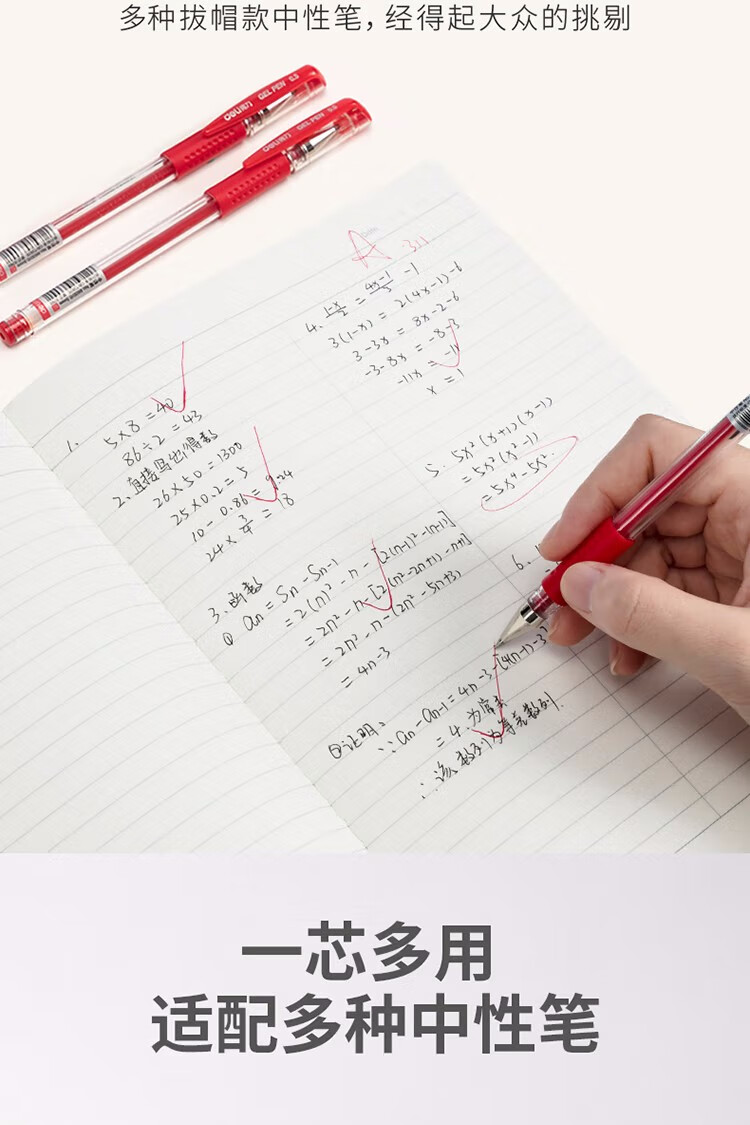 多种拔帽款中性笔，经得起大众的挑剔
deli得力 GEL PEN 0.5
deli得力 GEL PEN 0.5
A
4. (1-x)/2 = (4x-1)/3 - 1
3(1-x) = 2(4x-1)-6
3-3x = 8x-2-6
-3-8x = -8-3
-11x = -11
x = 1
1.
5×8=40
86÷2=43
2、直接写出得数
26×50=1300
25×0.2=5
10-0.86=9.24
24×3/4=18
5. 5x²(x+1)(x-1)
=5x²(x²-1)
=5x⁴-5x².
3、函数
① an = Sn-Sn-1
=2(n)²-n-[2(n-1)²-(n-1)]
=2n²-n-[2(n²-2n+1)-n+1]
=2n²-n-(2n²-5n+3)
=4n-3
6.
②证明:
∵an-an-1=4n-3-[4(n-1)-3]
=4 为常数
∴该数列为等差数列.
一芯多用
适配多种中性笔